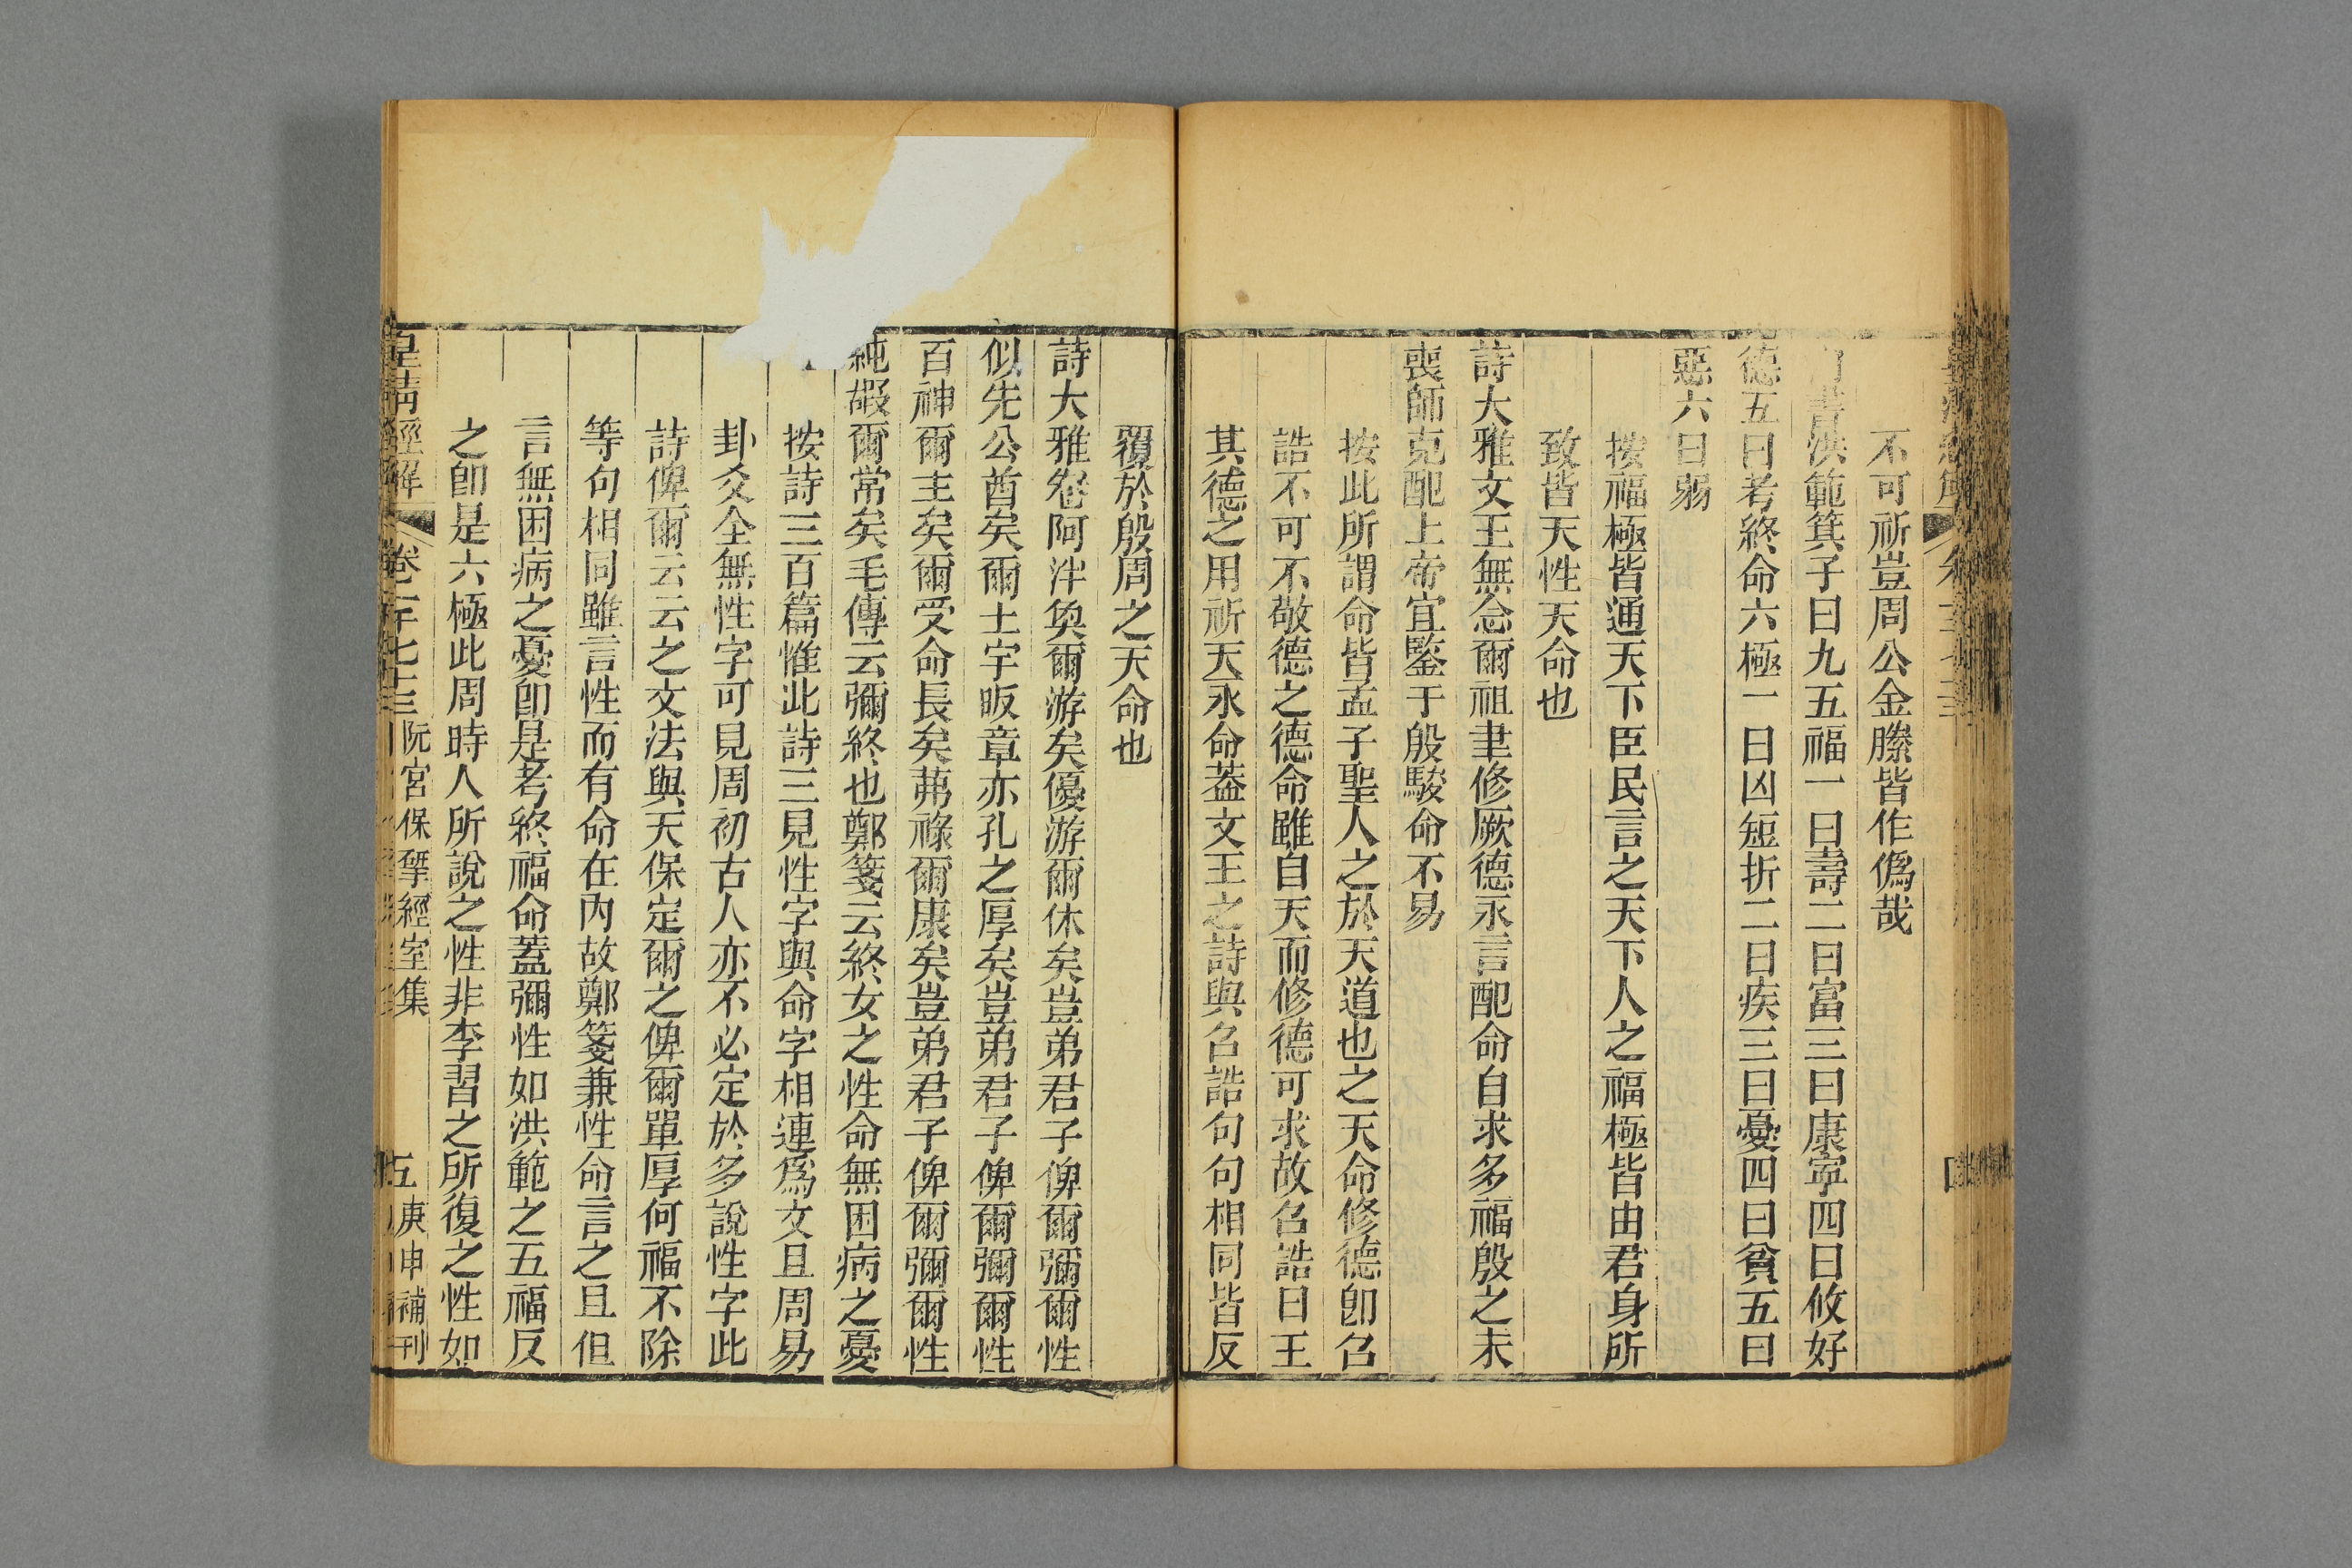 不可祈豈周公金縢皆作僞哉
書洪範箕子曰九五福一曰壽二曰富三曰康寧四曰攸好
德五曰考終命六極一曰凶短折二曰疾三曰憂四曰貧五曰
惡六曰弱
按福極皆通天下臣民言之天下人之福極皆由君身所
致皆天性天命也
詩大雅文王無念爾祖聿修厥德永言配命自求多福殷之未
喪師克配上帝宜鑒于殷駿命不易
按此所謂命皆孟子聖人之於天道也之天命修德卽召
誥不可不敬德之德命雖自天而修德可求故召誥曰王
其德之用祈天永命蓋文王之詩與召誥句句相同皆反
覆於殷周之天命也
詩大雅卷阿泮奐爾游矣優游爾休矣豈弟君子俾爾彌爾性
似先公酋矣爾土宇昄章亦孔之厚矣豈弟君子俾爾彌爾性
百神爾主矣爾受命長矣茀祿爾康矣豈弟君子俾爾彌爾性
純嘏爾常矣毛傳云彌終也鄭箋云終女之性命無困病之憂
按詩三百篇惟此詩三見性字與命字相連爲文且周易
卦爻全無性字可見周初古人亦不必定於多說性字此
詩俾爾云云之文法與天保定爾之俾爾單厚何福不除
等句相同雖言性而有命在內故鄭箋兼性命言之且但
言無困病之憂卽是考終福命蓋彌性如洪範之五福反
之卽是六極此周時人所說之性非李習之所復之性如
皇清經解 卷一千七十三 阮宮保揅經室集 五 庚申補刊